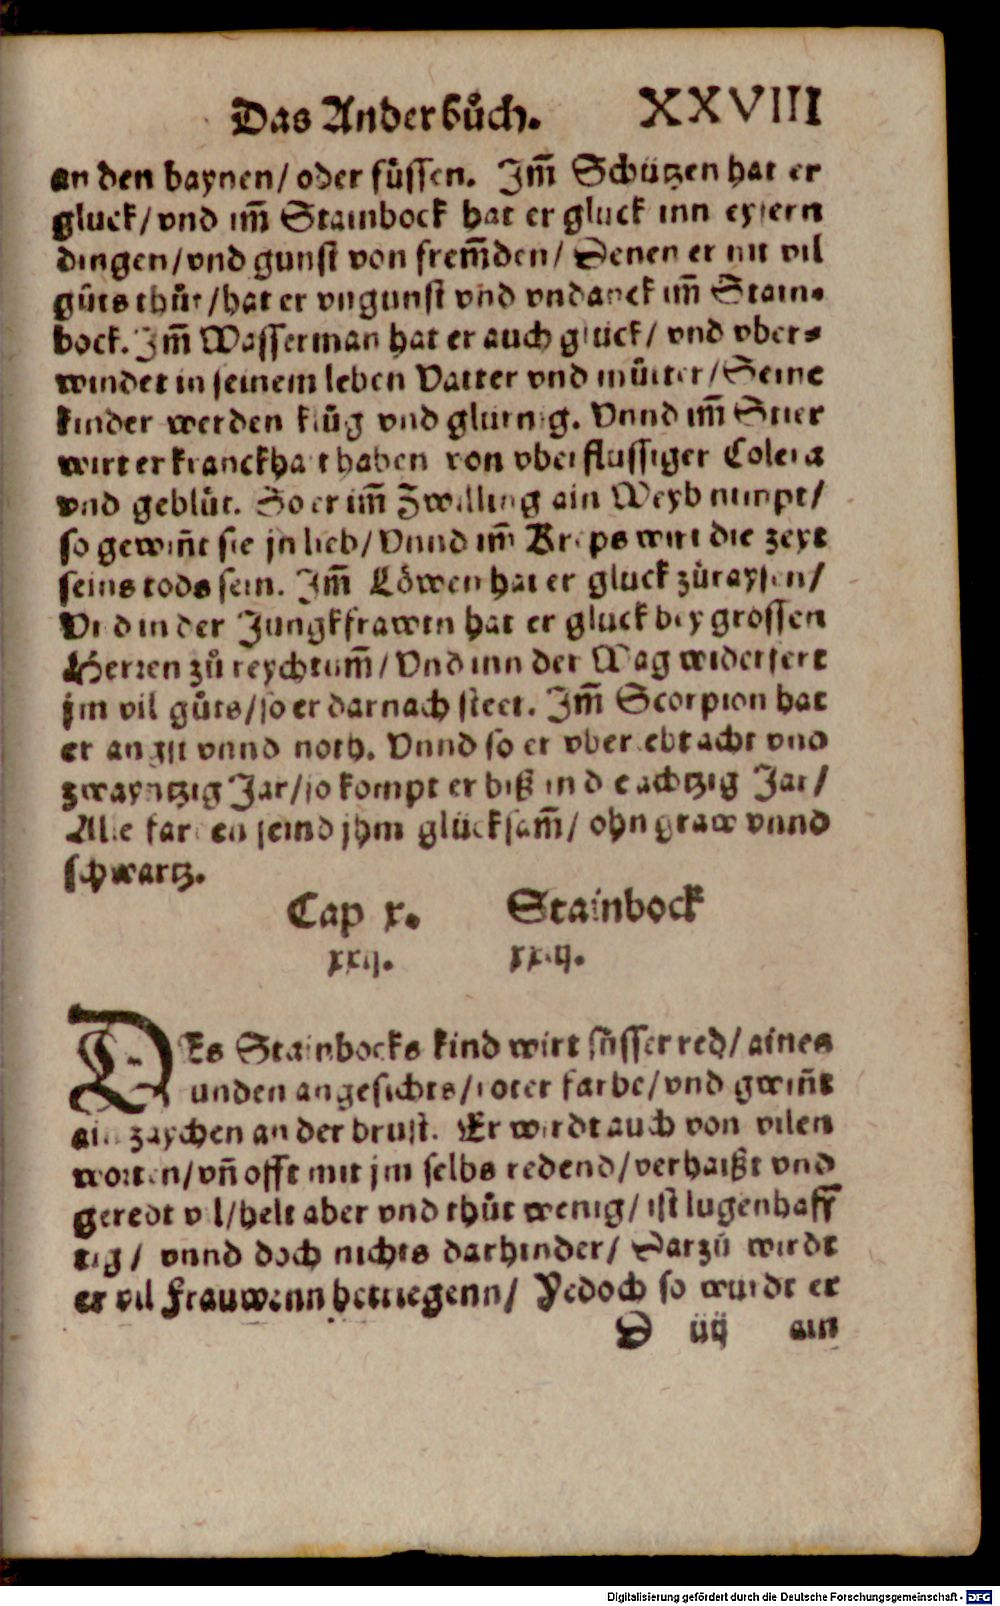 Das Ander bůch. XXVIII
an den baynen/ oder fůssen. Im̃ Schützen hat er
gluck/ vnd im̃ Stainbock hat er gluck inn eysern
dingen/ vnd gunst von frem̃den/ Denen er nit vil
gůts thůt/ hat er vngunst vnd vndanck im̃ Stain-
bock. Im̃ Wasserman hat er auch glück/ vnd vber-
windet in seinem leben Vatter vnd můtter/ Seine
kinder werden klůg vnd glurnig. Vnnd im̃ Stier
wirt er kranckhait haben von vberflussiger Colera
vnd geblůt. So er im̃ Zwilling ain Weyb nimpt/
so gewiñt sie jn lieb/ Vnnd im̃ Kreps wirt die zeyt
seins tods sein. Im̃ Löwen hat er gluck zůraysen/
Vnd in der Jungkfrawen hat er gluck bey grossen
Herren zů reychtum̃/ Vnd inn der Wag widerfert
jm vil gůts/ so er darnach steet. Im̃ Scorpion hat
er angst vnnd noth. Vnnd so er vberlebt acht vnd
zwayntzig Jar/ so kompt er biß in die achtzig Jar/
Alle farben seind jhm glücksam̃/ ohn graw vnnd
schwartz.
Cap x. Stainbock
xxij. xxiij.
DEs Stainbocks kind wirt sůsser red/ aines
runden angesichts/ roter farbe/ vnd gwiñt
ain zaychen an der brust. Er wirdt auch von vilen
worten/ vñ offt mit jm selbs redend/ verhaißt vnd
geredt vil/ helt aber vnd thůt wenig/ ist lugenhaff
tig/ vnnd doch nichts darhinder/ Darzů wirdt
er vil Frauwenn betriegenn/ Yedoch so wurdt er
D iiij ain
Digitalisierung gefördert durch die Deutsche Forschungsgemeinschaft - DFG